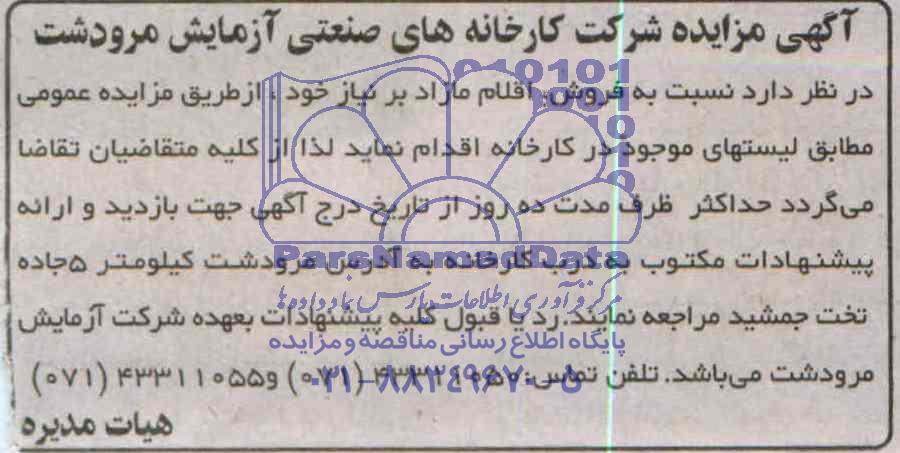 آگهی مزایده شرکت کارخانه های صنعتی آزمایش مرودشت
در نظر دارد نسبت به فروش اقلام مازاد بر نیاز خود، از طریق مزایده عمومی
مطابق لیستهای موجود در کارخانه اقدام نماید لذا از کلیه متقاضیان تقاضا
می‌گردد حداکثر ظرف مدت ده روز از تاریخ درج آگهی جهت بازدید و ارائه
پیشنهادات مکتوب به درب کارخانه به آدرس مرودشت کیلومتر ۵جاده
تخت جمشید مراجعه نمایند. رد یا قبول کلیه پیشنهادات بعهده شرکت آزمایش
مرودشت می‌باشد. تلفن تماس: (۰۷۱) و۴۳۳۱۱۰۵۵ (۰۷۱)
هیات مدیره
ParsNamadData
مرکز فرآوری اطلاعات پارس نماد داده ها
پایگاه اطلاع رسانی مناقصه و مزایده
۰۲۱-۸۸۳۴۹۶۷۰-۵